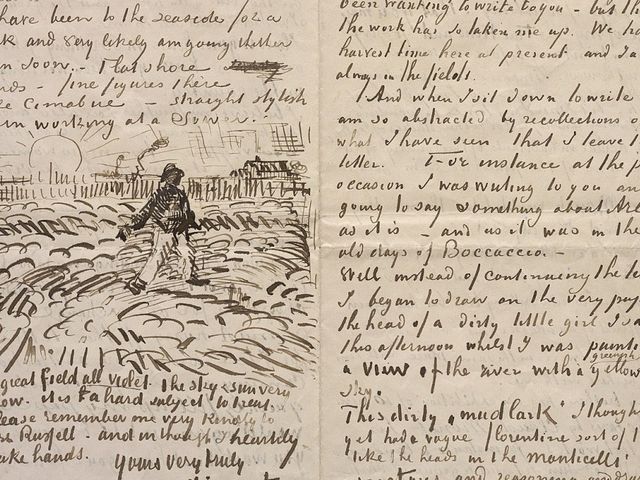 have been to the seaside for a
and very likely am going thither
soon. - Flat shore
- fine figures there
Cimabue - straight stylish
working at a Sower.
great field all violet the sky & sun very
it is a hard subject to treat.
Please remember me very kindly to
Russell - and in thought I heartily
shake hands.
Yours very truly
been wanting to write to you - but
the work has so taken me up. We
harvest time here at present and I
always in the fields.
And when I sit down to write
am so abstracted by recollections
what I have seen that I leave
letter. For instance at the
occasion I was writing to you
going to say something about
as it is - and as it was in the
old days of Boccaccio. -
Well instead of continuing the
I began to draw on the very
the head of a dirty little girl I
this afternoon whilst I was
greenish
a view of the river with a yellow
sky.
This dirty „mudlark“ I
yet had a vague florentine sort of
like the heads in the monticelli
and reasoning